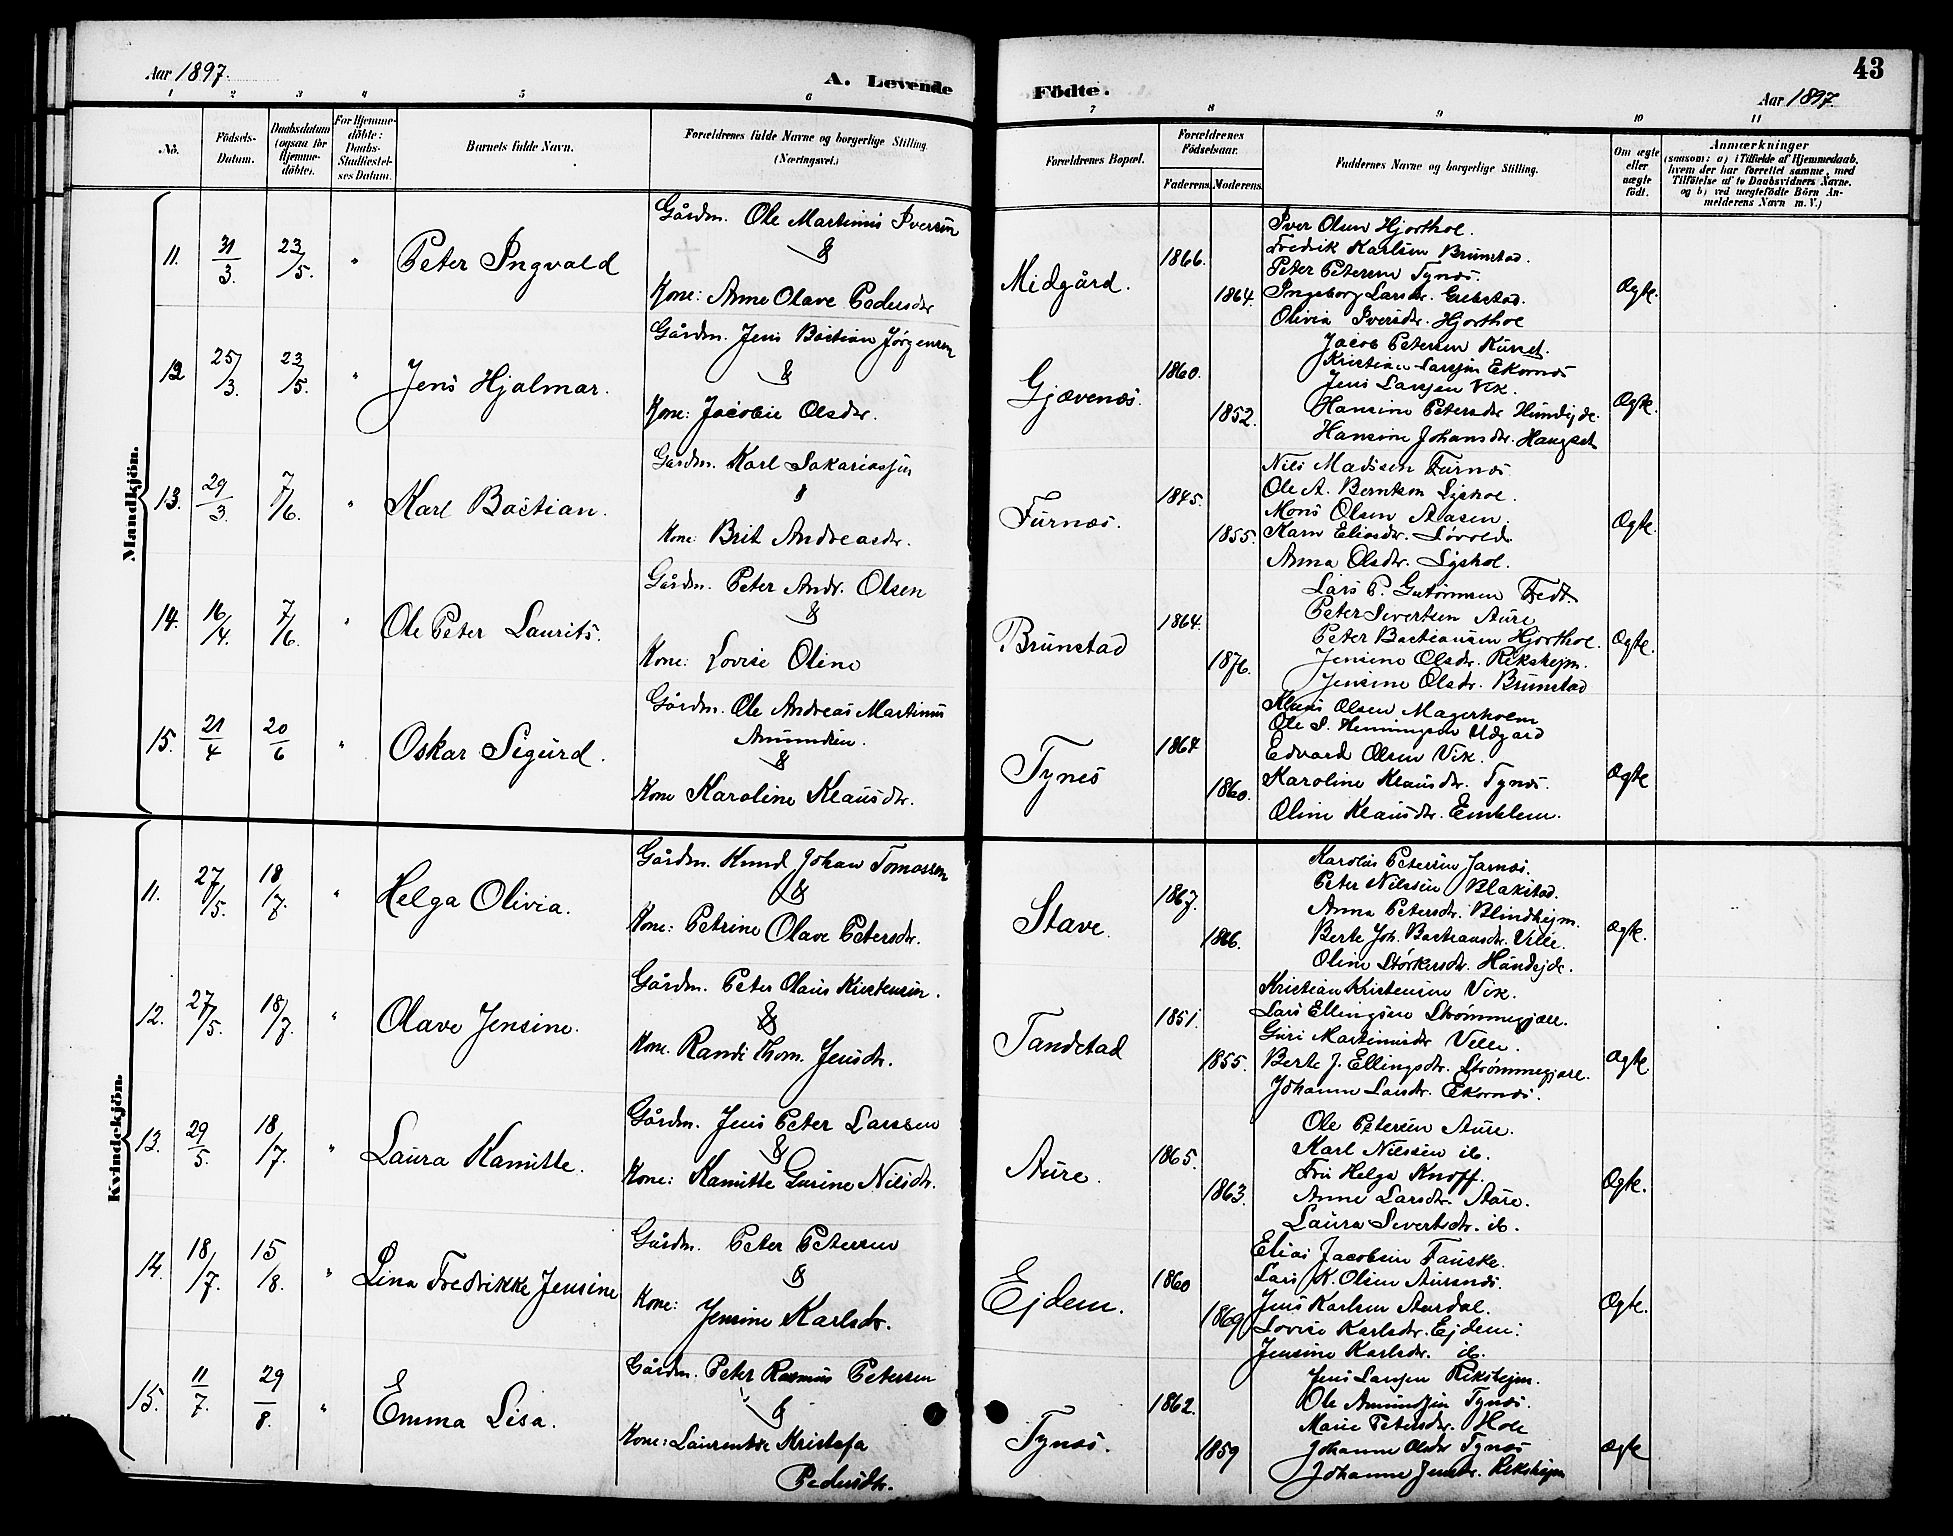 Aar 1897.
A. Levende
Födte.
43
Aar 1897
1 2 3 4 5 6 7 8 9 10 11
No.
Födsels-
Datum.
Daabsdatum
(ogsaa för
Hjemme-
döbte).
For Hjemme-
döbte:
Daabs-
Stadfæstel-
ses Datum.
Barnets fulde Navn.
Forældrenes fulde Navne og borgerlige Stilling.
(Næringsvei.)
Forældrenes Bopæl.
Forældrenes
Födselsaar.
Faderens. Moderens.
Faddernes Navne og borgerlige Stilling.
Om ægte
eller
uægte
födt.
Anmærkninger
(saasom: a) i Tilfælde af Hjemmedaab,
hvem der har forrettet samme, med
Tilföielse af to Daabsvidners Navne.
og b) ved uægtefödte Börn An-
melderens Navn m. V.)
Mandkjön.
11. 31/3. 23/5. " Peter Ingvald
Gårdm. Ole Martinus Iversen
&
Kone: Anne Olave Pedersdr
Midgård. 1866. 1864.
Iver Olsen Hjorthol.
Fredrik Karlsen Brunstad.
Peter Petersen Tynæs.
Ingeborg Larsdr. Grebstad.
Olivia Iversdr. Hjorthol
Ægte.
12 25/3. 23/5. " Jens Hjalmar.
Gårdm. Jens Bastian Jørgensen
&
Kone: Jacobie Olsdr.
Gjævenæs. 1860. 1852.
Jacob Petersen
Kristian Larsen Ekornæs
Jens Larssen Vik.
Hansine Petersdr Hundejde.
Hansine Johansdr. Haugset
Ægte.
13. 29/3. 7/6. " Karl Bastian.
Gårdm. Karl Sakariassen
&
Kone: Brit Andreasdr.
Furnæs. 1845. 1855.
Nils Madssen Furnæs
Ole A. Berntsen Lyshol.
Mons Olsen Aasen.
Karn Eliasdr. Løvold.
Anna Olsdr. Lyshol.
Ægte.
14. 16/4. 7/6. " Ole Peter Laurits.
Gårdm. Peter Andr. Olsen
&
Kone: Lovise Oline
Brunstad 1864. 1876.
Lars P. Gutormsen Fedt.
Peter Sivertsen Aure
Peter Bastiansen Hjorthol.
Jensine Olsdr. Riksheim.
Jensine Olsdr. Brunstad
Ægte.
15. 21/4 20/6 " Oskar Sigurd.
Gårdm. Ole Andreas Martinus
Amundsen.
&
Kone Karoline Klausdr.
Tynes 1864 1860.
Klaus Olsen Magerholm
Ole S. Henningsen Udgård
Edvard Olsen Vik.
Karoline Klausdr. Tynæs.
Oline Klausdr. Emblem.
Ægte
Kvindekjön.
11. 27/5. 18/7. " Helga Olivia.
Gårdm. Knud Johan Tomassen
&
Kone: Petrine Olave Petersdr.
Stave. 1867. 1866.
Karolus Petersen Jarnæs.
Peter Nilssen Blakstad.
Anna Petersdr. Blindhejm.
Berte Joh. Bastiansdr. Velle.
Oline Størkersdr. Hundejde.
Ægte.
12. 27/5. 18/7. " Olave Jensine.
Gårdm. Peter Olaus Kristensen.
&
Kone. Randi Thom. Jensdr.
Tandstad 1851. 1855.
Kristian Kristensen Vik.
Lars Ellingsen Strømmegjære.
Guri Martinusdr Velle.
Berte J. Ellingsdr. Strømmegjære.
Johanne Larsdr. Ekornæs.
Ægte
13. 29/5. 18/7. " Laura Kamitte.
Gårdm. Jens Peter Larssen
&
Kone: Kamitte Gurine Nilsdr.
Aure. 1865. 1863.
Ole Petersen Aure.
Karl Nilssen ib.
Fru Helga Knoff.
Anne Larsdr. Aure.
Laura Sivertsdr. ib.
Ægte.
14. 18/7. 15/8. " Lina Fredrikke Jensine
Gårdm. Peter Petersen
&
Kone: Jensine Karlsdr.
Ejdem. 1860 1869
Elias Jacobsen Fauske.
Lars K. Olsen Aursnæs.
Jens Karlsen Aurdal.
Lovise Karlsdr. Ejdem.
Jensine Karlsdr. ib.
Ægte.
15. 11/7. 29/8. " Emma Lisa.
Gårdm. Peter Rasmus Petersen
&
Kone: Laurentse Kristofa
Pedersdtr.
Tynæs. 1862. 1859
Jens Larssen Rikshejm.
Ole Amundsen Tynæs.
Marie Petersdr. Hole
Johanne Olsdr Tynæs
Johanne Jensdr. Rikshejm
Ægte